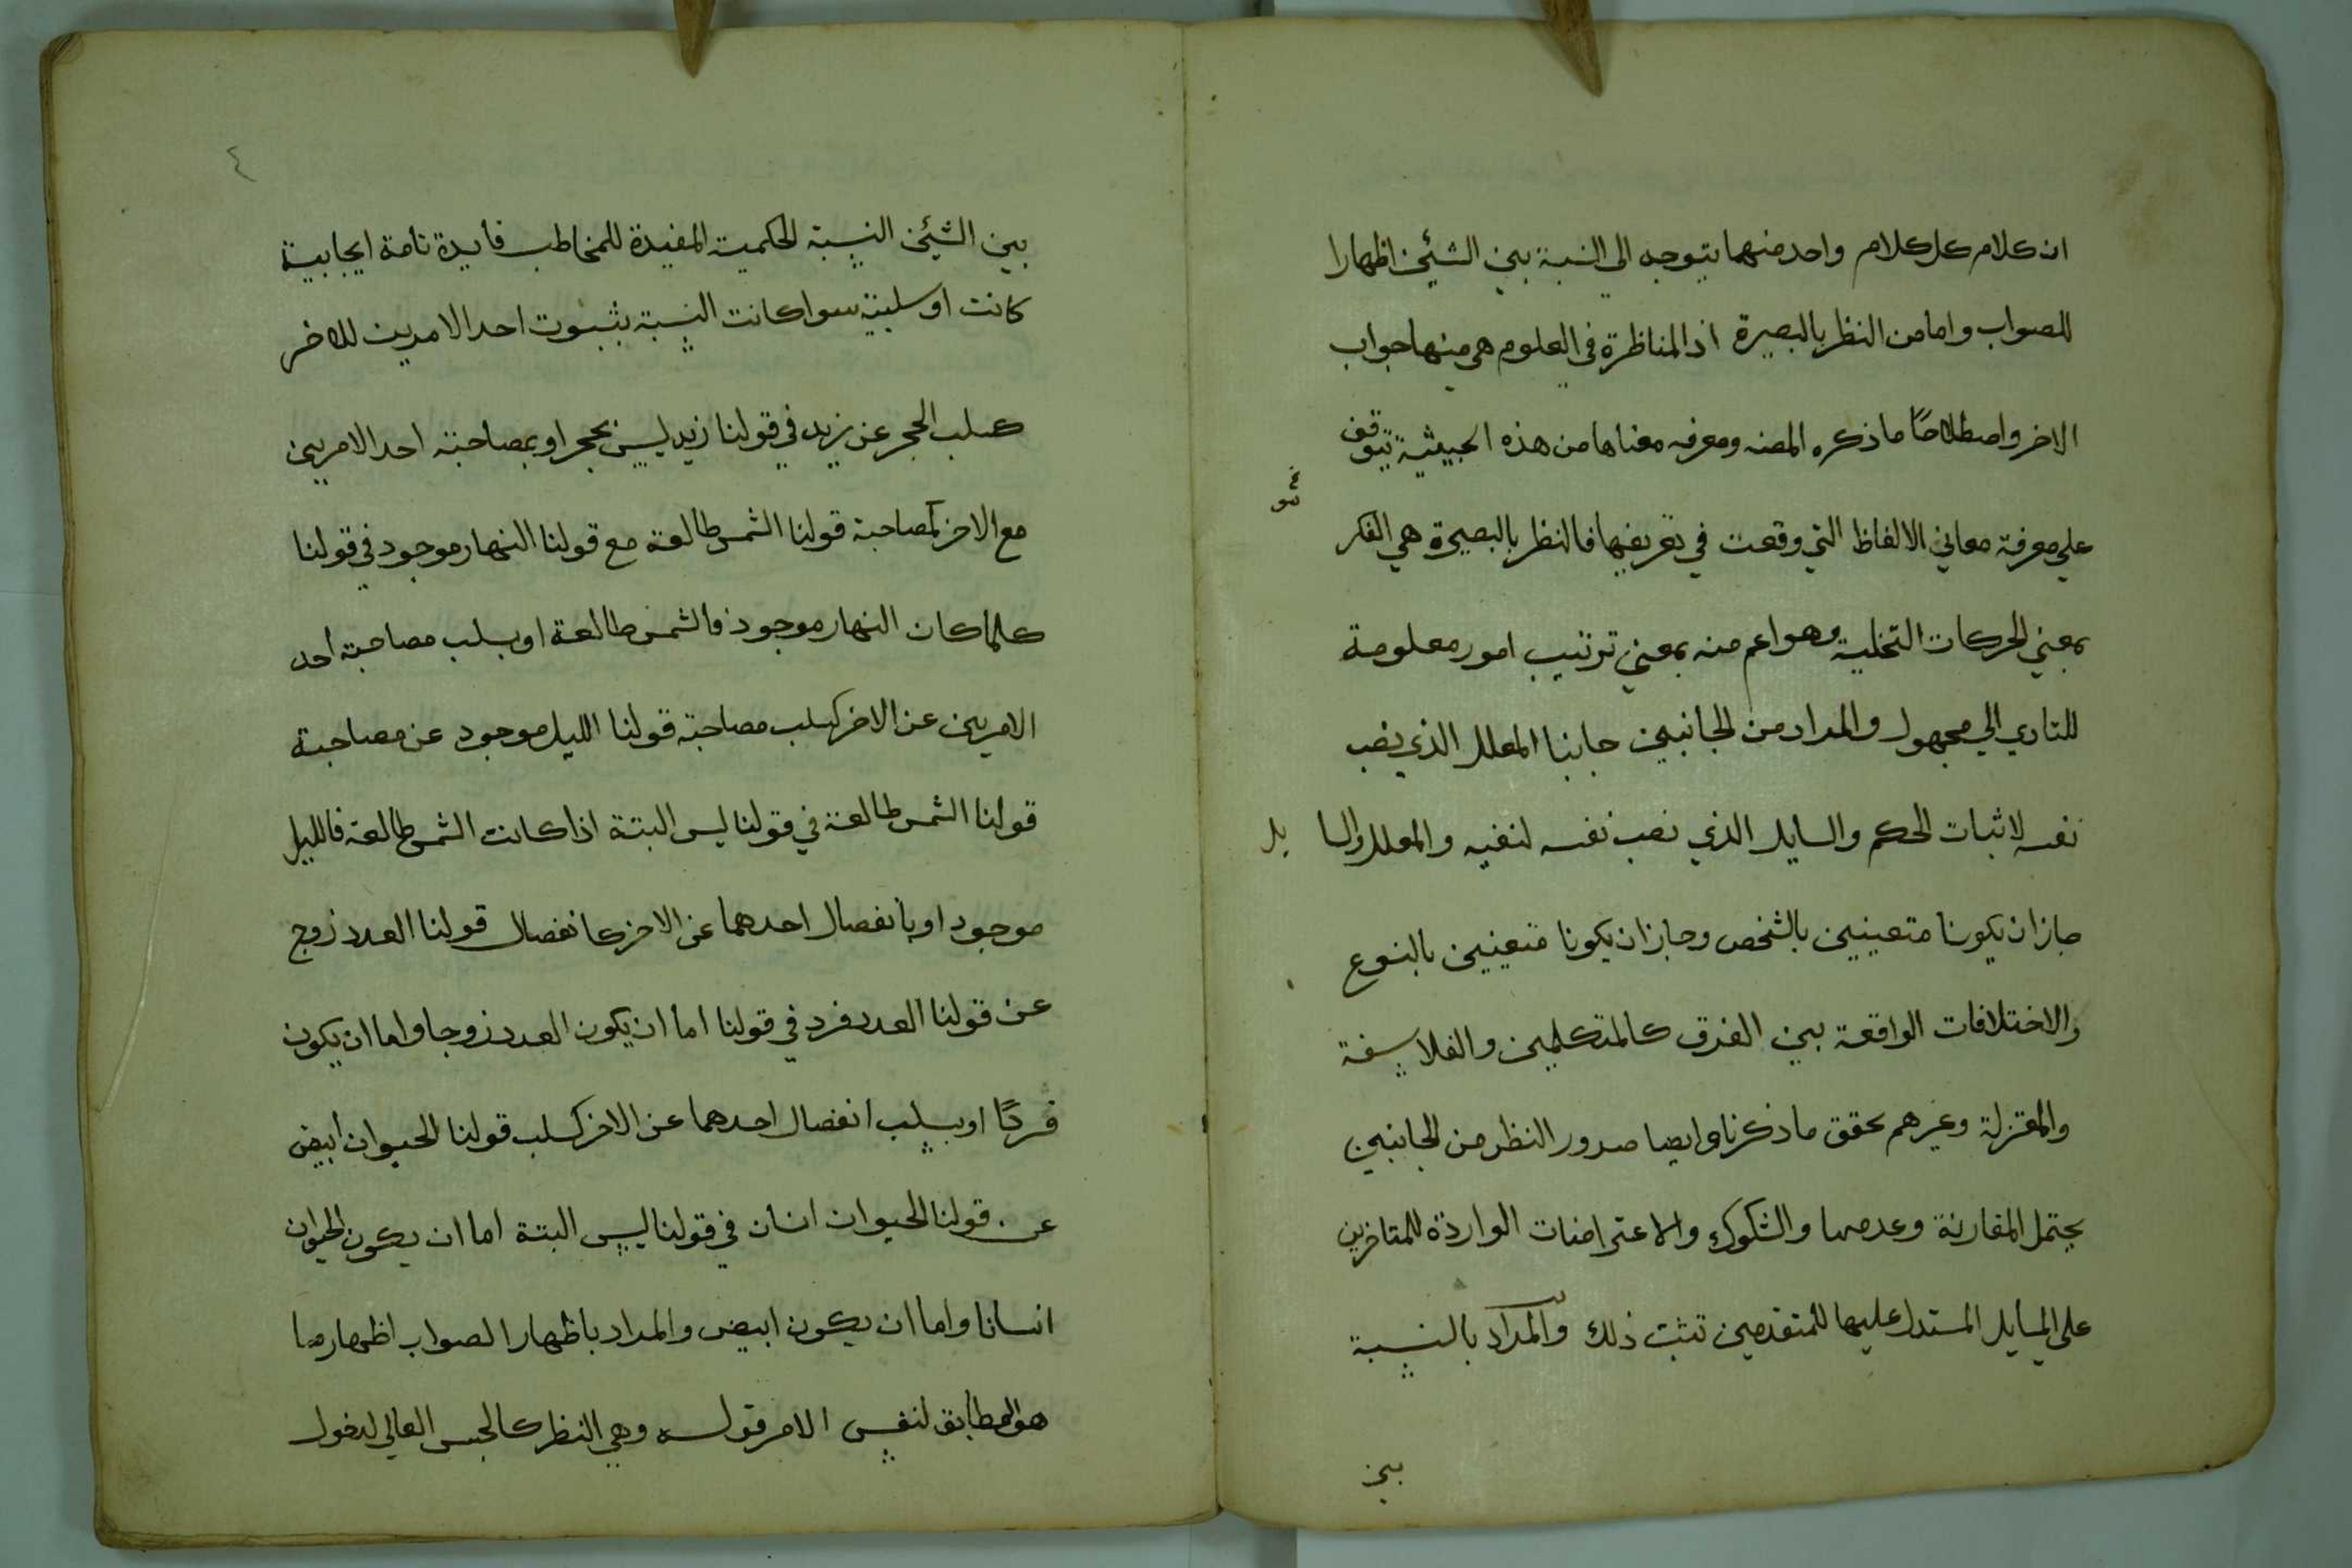 ان كلام كل كلام واحد منهما يتوجه الي النسبة بين الشيئين اظهارا
للصواب واما من النظر بالبصيرة اذ المناظرة في العلوم هي منها جواب
الاخر واصطلاحًا ما ذكره المصنه ومعرفه معناها من هذه الحيثية تتوقف
علي معرفة معاني الالفاظ التي وقعت في تعريفها فالنظر بالبصيرة هي الفكر
بمعني الحركات التخلية وهو اعم منه بمعني ترتيب امور معلومة
للتادي الي مجهول والمراد من الجانبين جانبا المعلل الذي نصب
نفسه لاثبات الحكم والسايل الذي نصب نفسه لنفيه والمعلل والسا يل
جاز ان يكونا متعينين بالشخص وجاز ان يكونا متعينين بالنوع
والاختلافات الواقعة بين الفرق كالمتكلمين والفلاسفة
والمعتزلة وغيرهم تحقق ما ذكرنا وايضا صدور النظر من الجانبين
يحتمل المقارنة وعدمها والشكوك والاعتراضات الواردة للمتاخرين
علي المسايل المستدل عليها للمتقدمين تثبت ذلك والمراد بالنسبة
بين
٤
بين الشيئين النسبة الحكمية المفيدة للمخاطب فايدة تامة ايجابية
كانت او سلبية سوا كانت النسبة بثبوت احد الامرين للاخر
كسلب الحجر عن زيد في قولنا زيد ليس بحجر او بمصاحبة احد الامرين
مع الاخر كمصاحبة قولنا الشمس طالعة مع قولنا النهار موجود في قولنا
كلما كان النهار موجود فالشمس طالعة او بسلب مصاحبة احد
الامرين عن الاخر كسلب مصاحبة قولنا الليل موجود عن مصاحبة
قولنا الشمس طالعة في قولنا ليس البتة اذا كانت الشمس طالعة فالليل
موجود او بانفصال احدهما عن الاخر كانفصال قولنا العدد زوج
عن قولنا العدد فرد في قولنا اما ان يكون العدد زوجا واما ان يكون
فردًا او بسلب انفصال احدهما عن الاخر كسلب قولنا الحيوان ابيض
عن قولنا الحيوان انسان في قولنا ليس البتة اما ان يكون الحيوان
انسانا واما ان يكون ابيض والمراد باظهار الصواب اظهار ما
هو المطابق لنفس الامر قوله وهي النظر كالجنس العالي لدخول